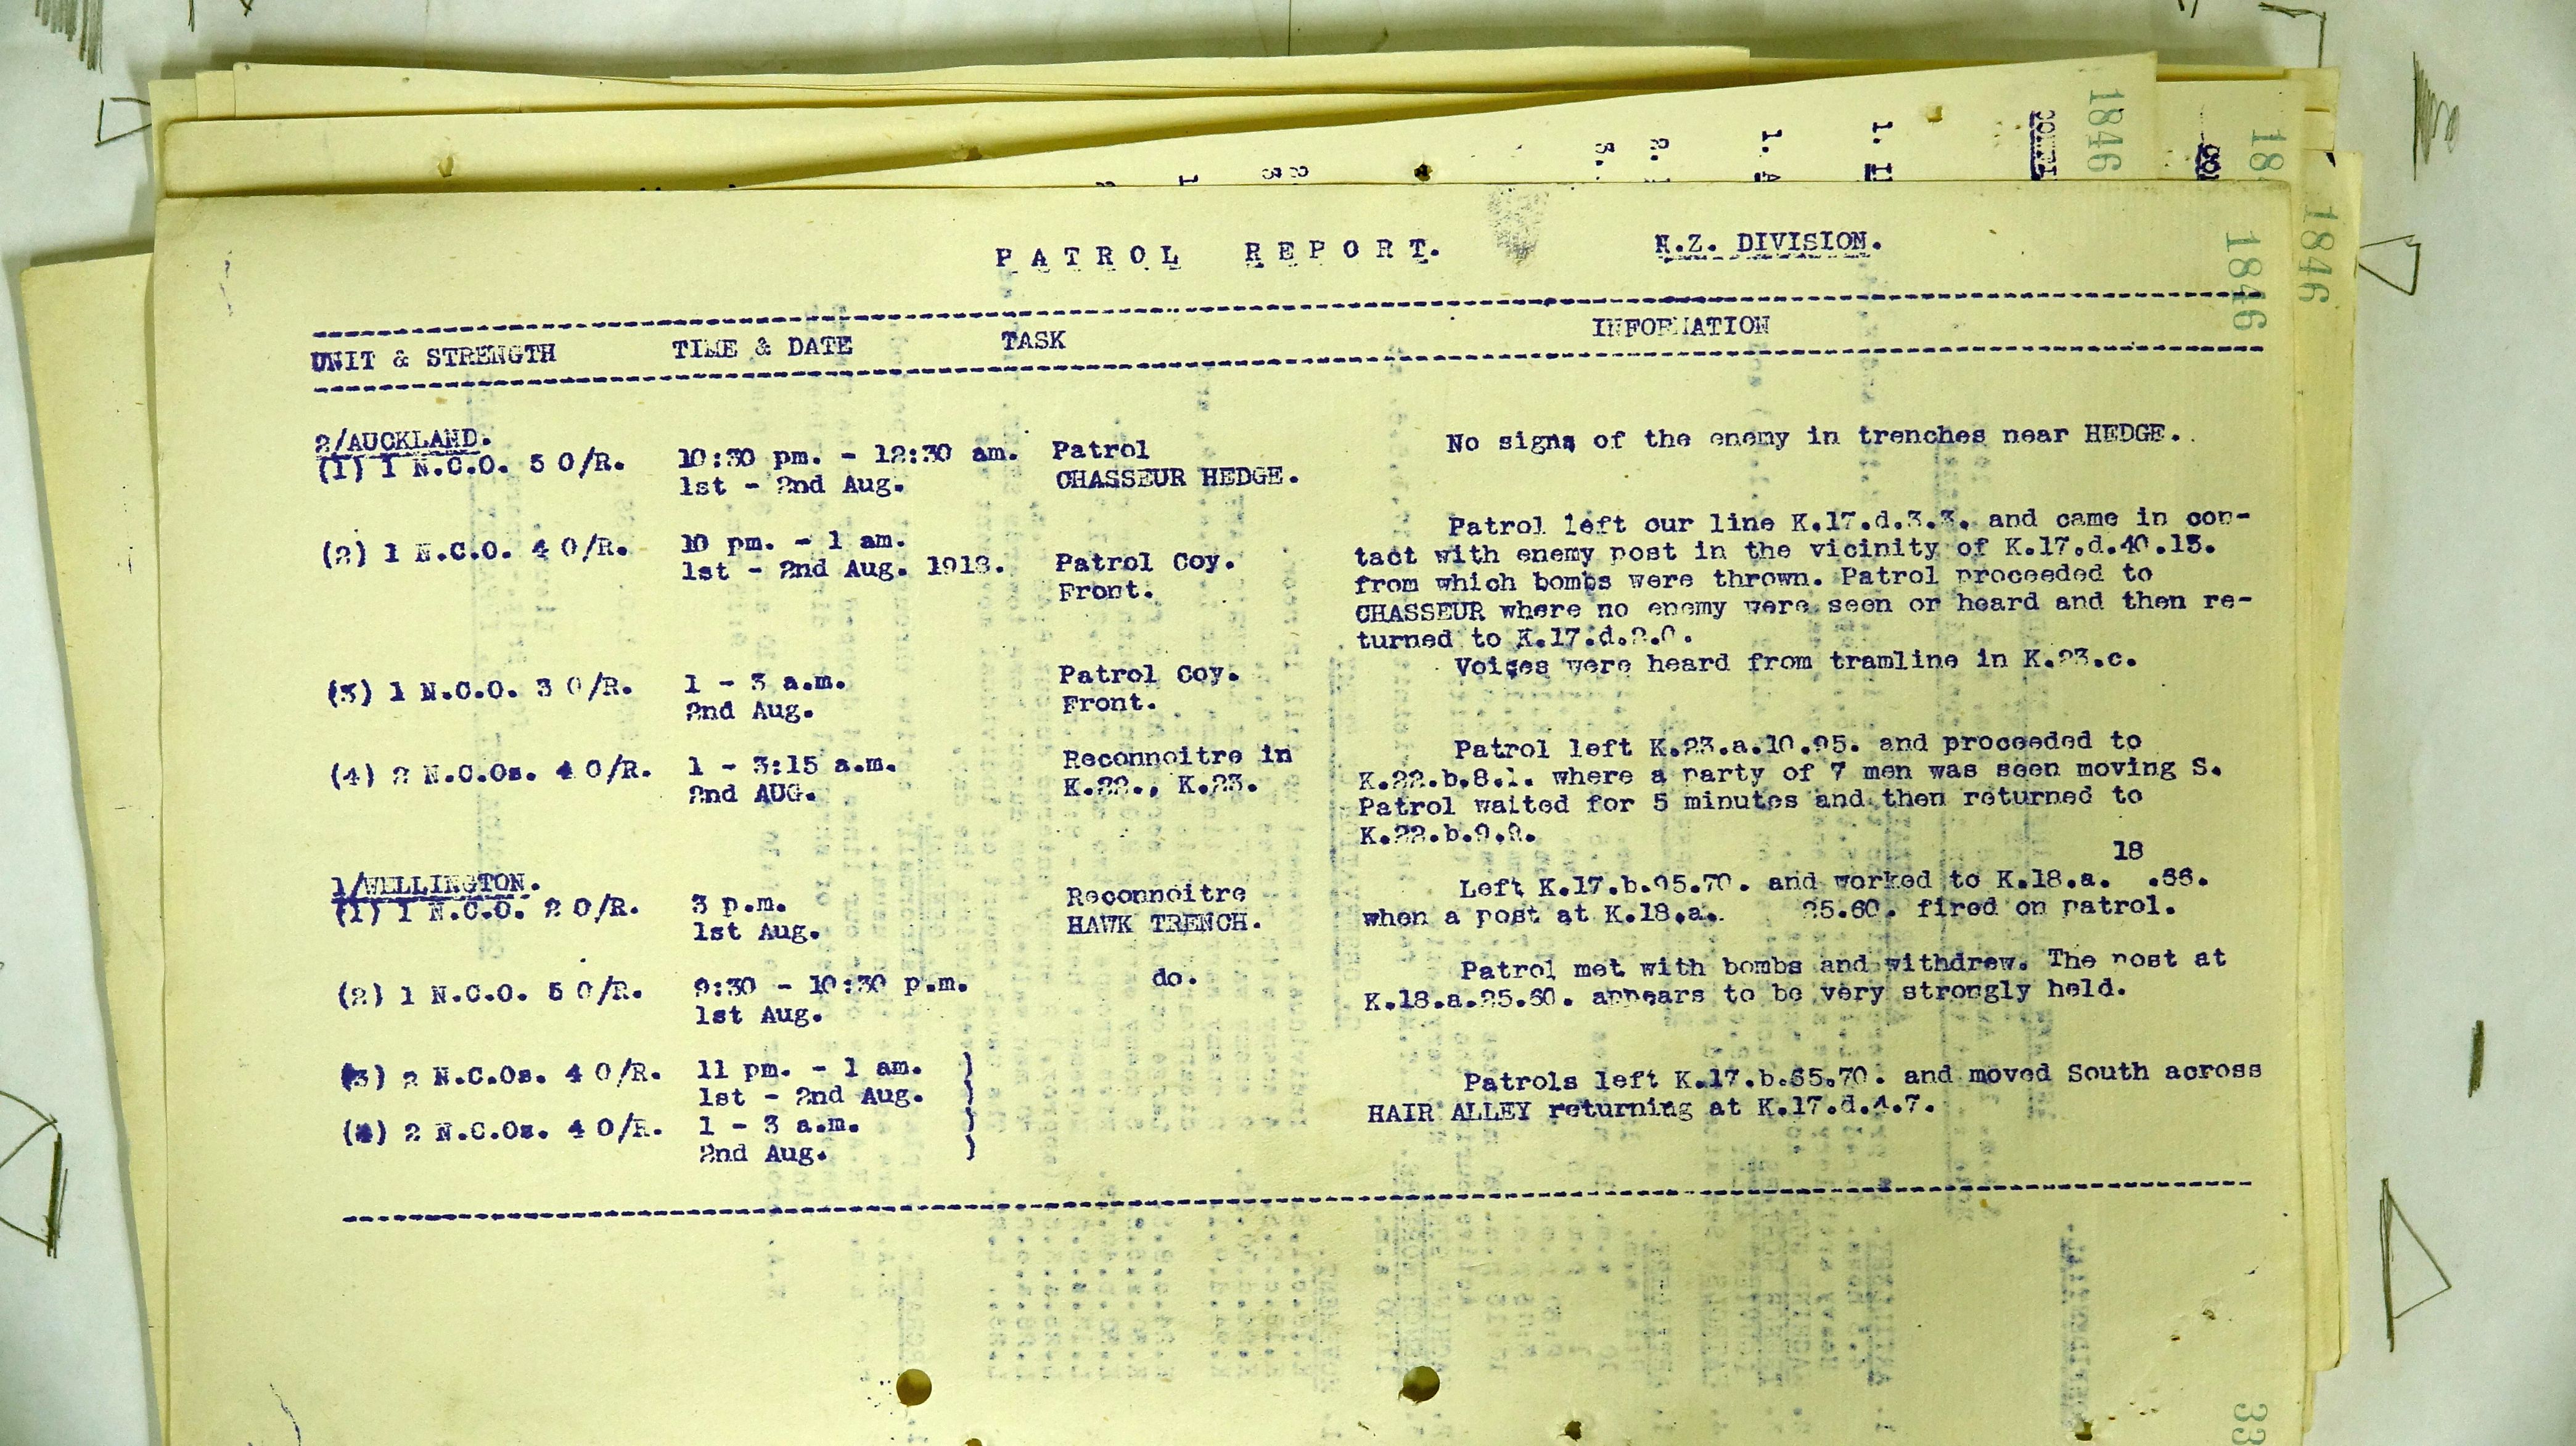 PATROL REPORT. N.Z. DIVISION.
UNIT & STRENGTH TIME & DATE TASK INFORMATION
2/AUCKLAND.
(1) 1 N.C.O. 5 O/R. 10:30 pm. - 12:30 am. Patrol No signs of the enemy in trenches near HEDGE.
1st - 2nd Aug. CHASSEUR HEDGE.
(2) 1 N.C.O. 4 O/R. 10 pm. - 1 am. Patrol Coy. Patrol left our line K.17.d.3.3. and came in con-
1st - 2nd Aug. 1918. Front. tact with enemy post in the vicinity of K.17.d.40.15.
from which bombs were thrown. Patrol proceeded to
CHASSEUR where no enemy were seen or heard and then re-
turned to K.17.d.2.0.
(3) 1 N.C.O. 3 O/R. 1 - 3 a.m. Patrol Coy. Voices were heard from tramline in K.23.c.
2nd Aug. Front.
(4) 2 N.C.Os. 4 O/R. 1 - 3:15 a.m. Reconnoitre in Patrol left K.23.a.10.95. and proceeded to
2nd AUG. K.22., K.23. K.22.b.8.1. where a party of 7 men was seen moving S.
Patrol waited for 5 minutes and then returned to
K.22.b.9.9.
1/WELLINGTON. 18
(1) 1 N.C.O. 2 O/R. 3 p.m. Reconnoitre Left K.17.b.95.70. and worked to K.18.a. .66.
1st Aug. HAWK TRENCH. when a post at K.18.a. 25.60. fired on patrol.
(2) 1 N.C.O. 5 O/R. 9:30 - 10:30 p.m. do. Patrol met with bombs and withdrew. The post at
1st Aug. K.18.a.25.60. appears to be very strongly held.
(3) 2 N.C.Os. 4 O/R. 11 pm. - 1 am. ) Patrols left K.17.b.65.70. and moved South across
1st - 2nd Aug. ) HAIR ALLEY returning at K.17.d.4.7.
(4) 2 N.C.Os. 4 O/R. 1 - 3 a.m. )
2nd Aug. )
1846
1846
1846
18
33